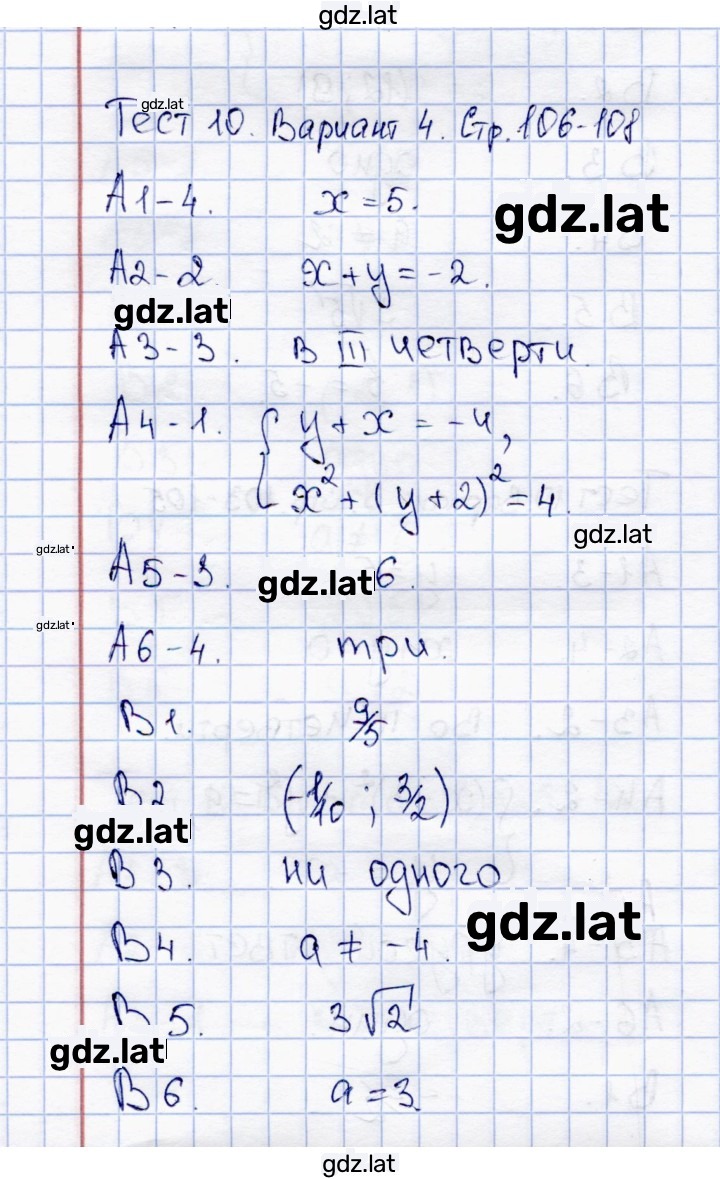 gdz.lat
Тест 10. Вариант 4. Стр. 106-108
gdz.lat
А1-4. x = 5.
gdz.lat
А2-2. x + y = -2.
gdz.lat
А3-3. В III четверти.
А4-1. { y + x = -4,
x² + (y + 2)² = 4.
gdz.lat
gdz.lat
А5-3. gdz.lat 6.
gdz.lat
А6-4. три.
В1. 9/5
В2 (-1/10 ; 3/2)
gdz.lat
В3. ни одного
gdz.lat
В4. a ≠ -4.
В5. 3√2
gdz.lat
В6. a = 3.
gdz.lat